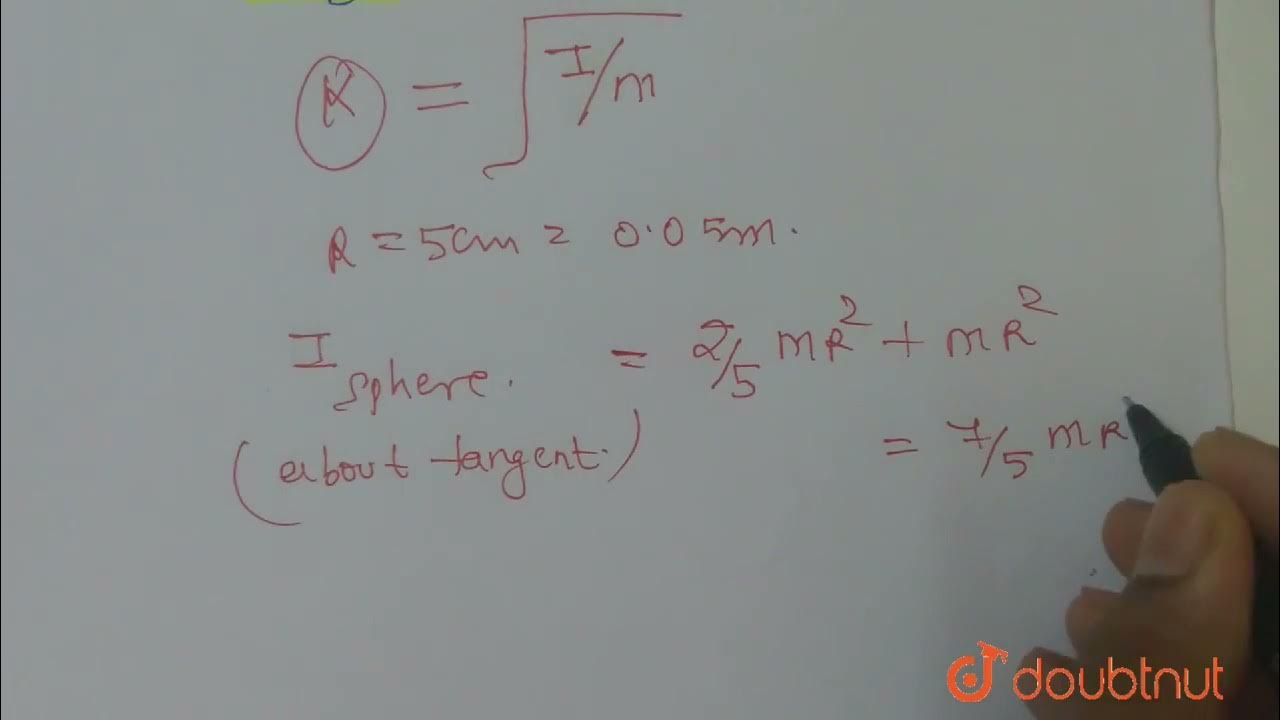 K = √I/m
R = 5cm = 0.05m.
I sphere. = 2/5 mR² + mR²
(about tangent.) = 7/5 mR
doubtnut